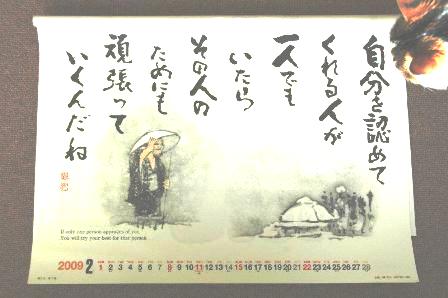 自分を認めて
くれる人が
一人でも
いたら
その人の
ためにも
頑張って
いくんだね
If only one person approves of you,
You will try your best for that person.
2009 2 1 2 3 4 5 6 7 8 9 10 11 12 13 14 15 16 17 18 19 20 21 22 23 24 25 26 27 28